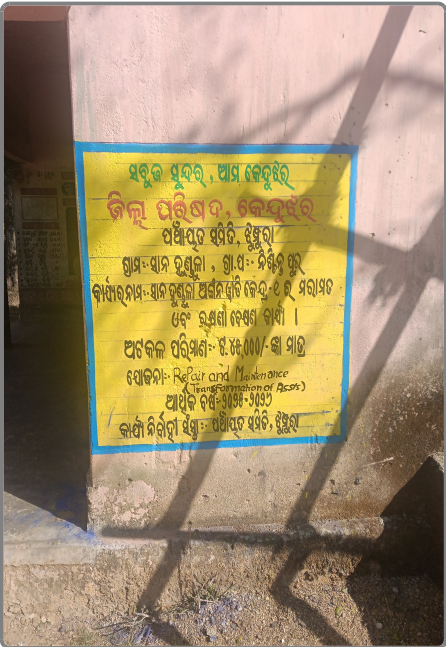 ସବୁଜ ସୁନ୍ଦର, ଆମ କେନ୍ଦୁଝର
ଜିଲ୍ଲା ପରିଷଦ, କେନ୍ଦୁଝର
ପଞ୍ଚାୟତ ସମିତି, ଝୁମ୍ପୁରା
ଗ୍ରାମ:- ସାନ ହୁଣ୍ଡୁଳା, ଗ୍ରା.ପ:- ନିଶ୍ଚିନ୍ତ ପୁର
କାର୍ଯ୍ୟର ନାମ:- ସାନ ହୁଣ୍ଡୁଳା ଅଙ୍ଗନୱାଡି କେନ୍ଦ୍ର-୧ ର ମରାମତ
ଏବଂ ରକ୍ଷଣା ବେକ୍ଷଣ କାର୍ଯ୍ୟ ।
ଅଟକଳ ପରିମାଣ:- ଟ.୪୫,୦୦୦/- ଙ୍କା ମାତ୍ର
ଯୋଜନା:- Repair and Maintenance
(Transformation of
ଆର୍ଥିକ ବର୍ଷ:-
କାର୍ଯ୍ୟ ନିର୍ବାହୀ ସଂସ୍ଥା:- ପଞ୍ଚାୟତ ସମିତି, ଝୁମ୍ପୁରା